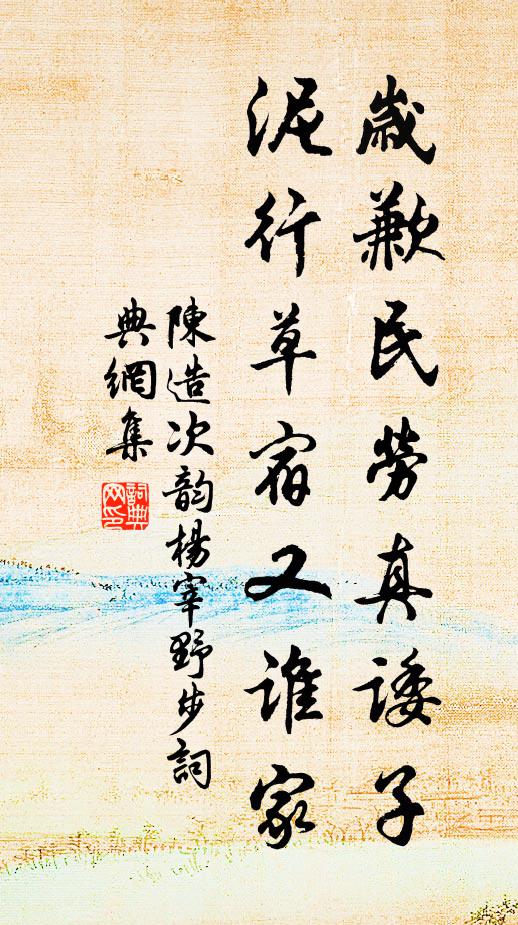 歲歉民勞真諉子
泥行草宿又誰家
陳造次韵楊宰野步詞
典網集
詞典网印